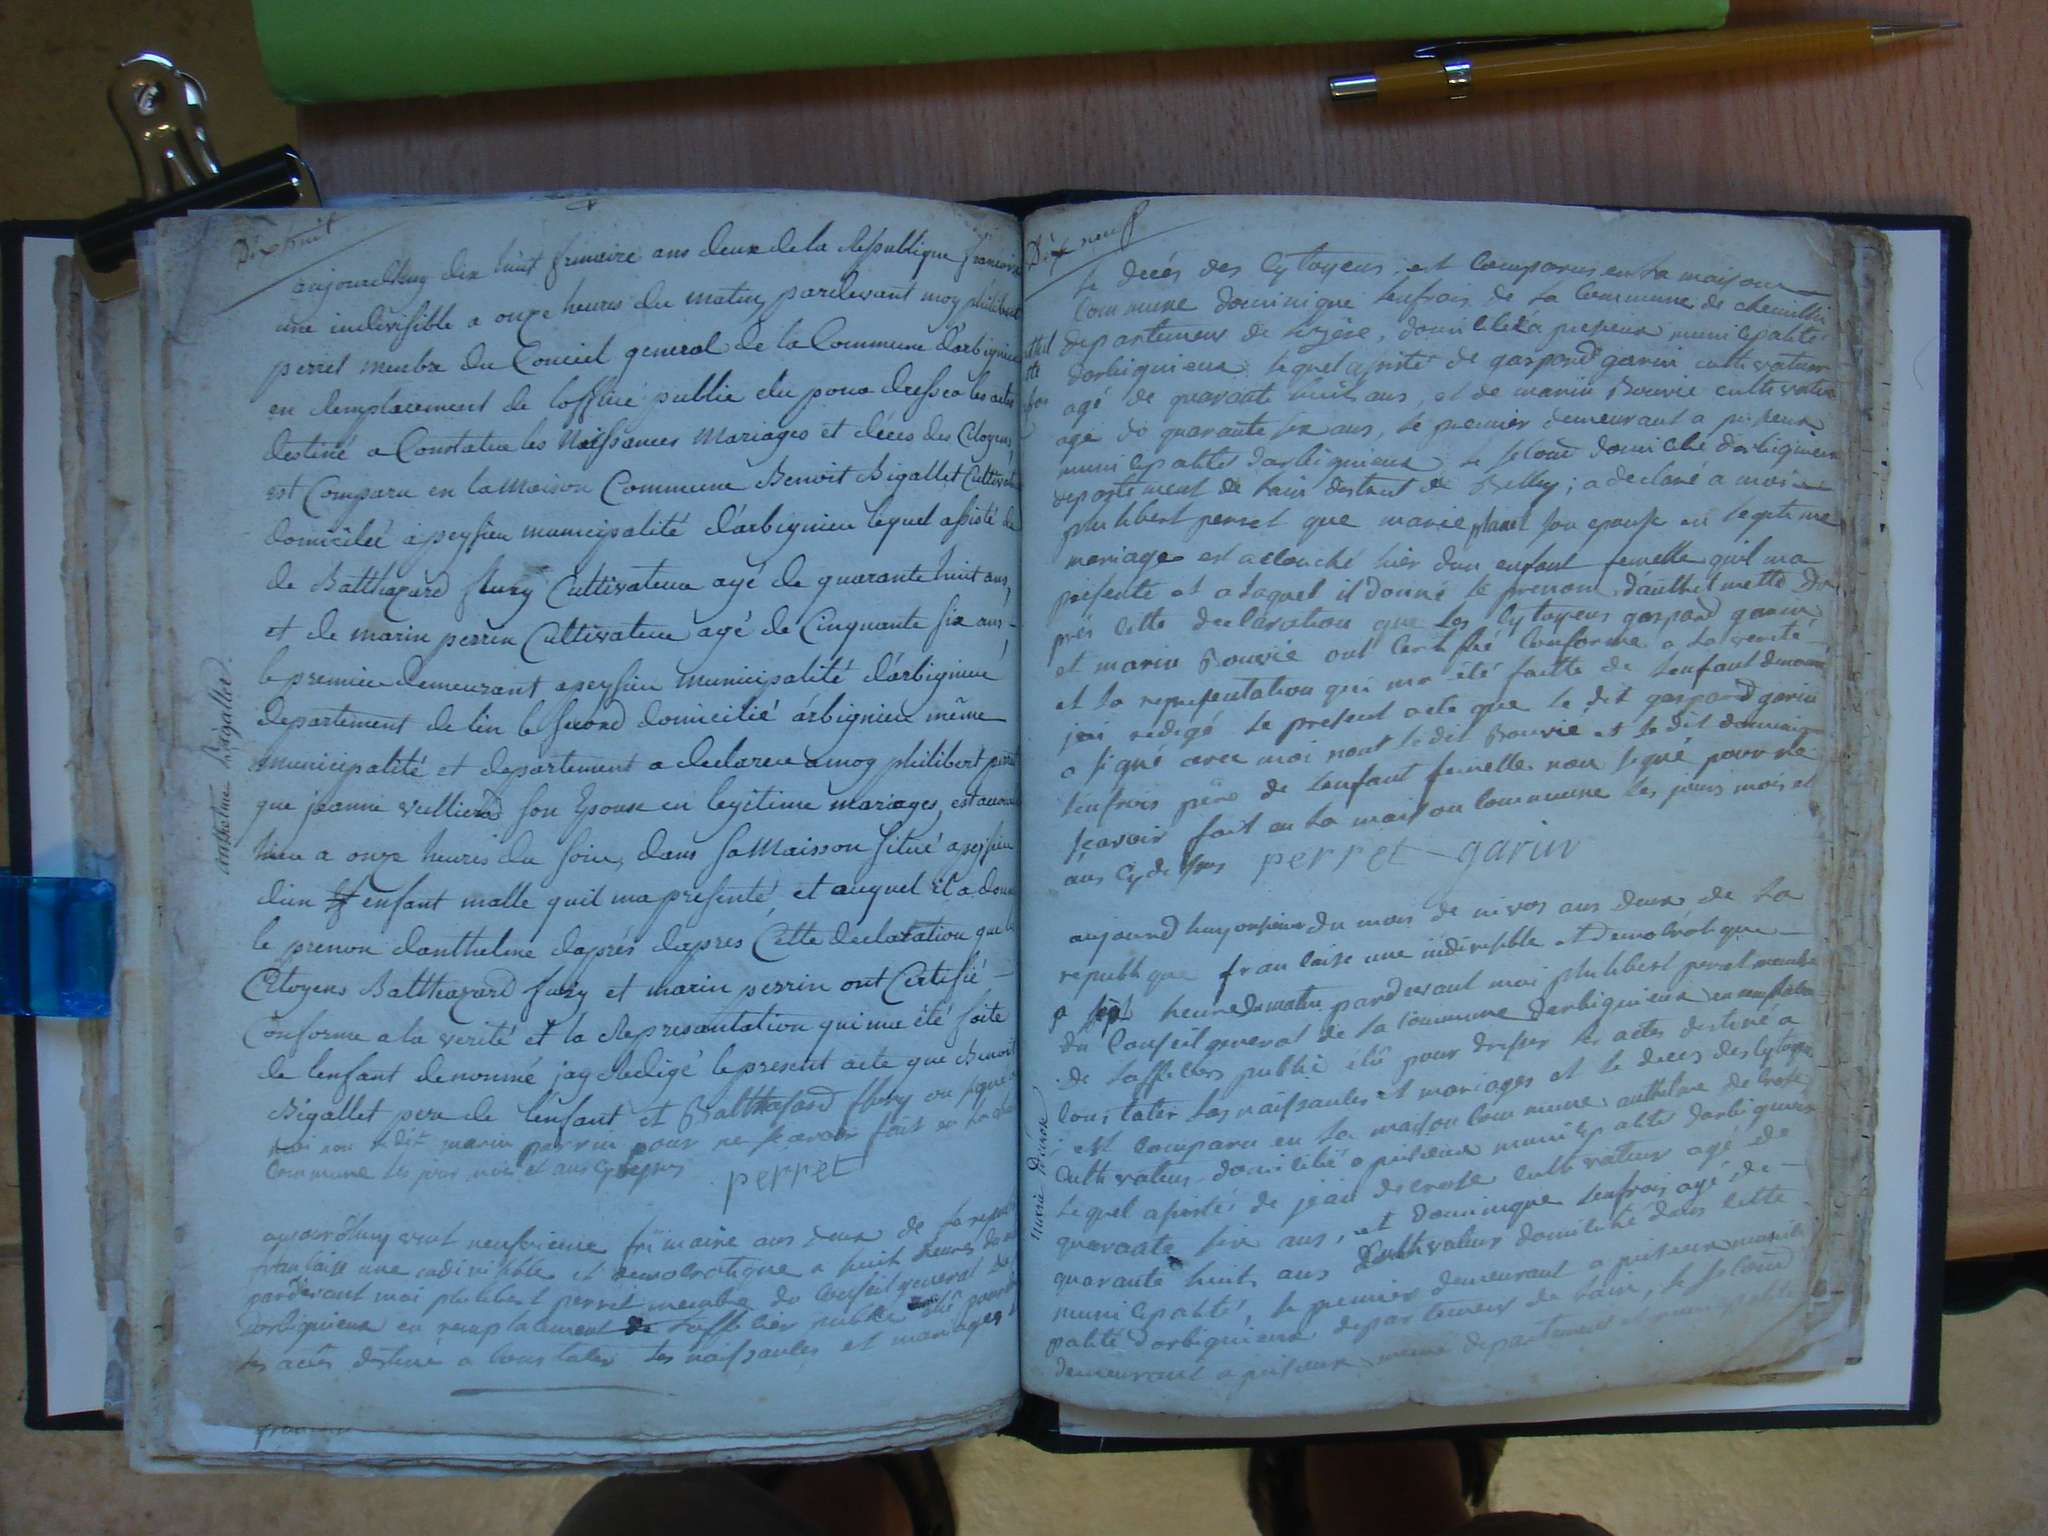 Dixhuit
aujourdhuy dix huit frimaire ans deux de la Republique francoise
une indivisible a onze heures du matin, pardevant moy philibert
perret membre du Conceil general de la Commune d'arbignieu
en remplacement de loffice public elu pour dresser les actes
destiné a Constater les Naissances Mariages et déces des Citoyens,
est Comparu en la Maison Commune Benoit Bigallet Cultivateur
domicilié a peyssieu municipalité d'arbignieu lequel assisté de
de Balthazard flury Cultivateur agé de quarante huit ans,
et de marin perrin Cultivateur agé de Cinquante six ans
le premier demeurant a peyssieu municipalité d'arbignieu
departement de lin le second domicilié árbignieu même
municipalité et departement a declarer a moy philibert perret
que jeanne vullierd son Epouse en legitime mariages, est
hier a onze heures du soir, dans sa Maisson situé a peyssieu
d'un enfant malle quil ma presenté, et auquel il a donné
le prenon danthelme daprés dapres Cette declaration que les
Citoyens Balthazard flury et marin perrin ont Certifié
Conforme a la verité et la Representation qui ma été faite
de lenfant denommé jay Redigé le present acte que Benoit
Bigallet pere de lenfant et Balthasard flury on signé
moi non le dit marin perrin pour ne scavoir fait en la
Commune les jour mois et ans cydessus perret
anthelme Bigallet
aujourdhuy vint neufvieme frimaire ans deux de la
francaise une indivisible et democratique a huit heures du
pardevant moi philibert perret membre du Conseil general de
darbignieux en remplacement de lofficier public élu pour
les actes destiné a Constater les naissances et mariages
Dix neuf
le decés des Cytoyens est Comparus en la maison
Commune dominique lenfrois de la Commune de
departement de lizère, domicilié a puisieux municipalité
darbignieux lequel assisté de gaspard garin cultivateur
agé de quarante huit ans, et de marin Bouvié cultivateur
agé de quarante six ans, le premier demeurant a puisieux
municipalité darbignieux le second domicilié darbignieux
departement de lain district de Belley; a declaré a moi
philibert perret que marie son epouse en legitime
mariage est accouché hier dun enfant femelle quil ma
presenté et a laquel il donné le prenom d'anthelmette Da
prés cette declaration que les Cytoyens gaspard garin
et marin Bouvié ont Certifié Conforme a la verité
et la representation qui ma été faitte de lenfant denommé
jai redigé le present acte que le dit gaspard garin
a signé avec moi nont le dit Bouvié et le dit dominique
lenfrois pére de lenfant femelle non signé pour ne
scavoir fait en la maison Commune les jours mois et
ans Cydessus perret garin
aujourdhuy onsieme du mois de nivos ans deux de la
republique francaise une indivisible et democratique
a sept heure du matin pardevant moi philibert perret membre
du Conseil general de la Commune darbignieux en remplacement
de lofficiers public élu pour dresser les actes destiné a
Constater les naissances et mariages et le deces des Cytoyens
est Comparu en la maison Commune anthelme decrose
Cultivateur domicilié a puisieux municipalité darbignieux
lequel assisté de jean decrose cultivateur agé de
quarante six ans, et dominique lenfrois agé de
quarante huit ans Cultivateur domicilié dans cette
municipalité, le premier demeurant a puisieux municipalité
palité darbignieux departement de lain, le second
demeurant a puisieux même departement et municipalité